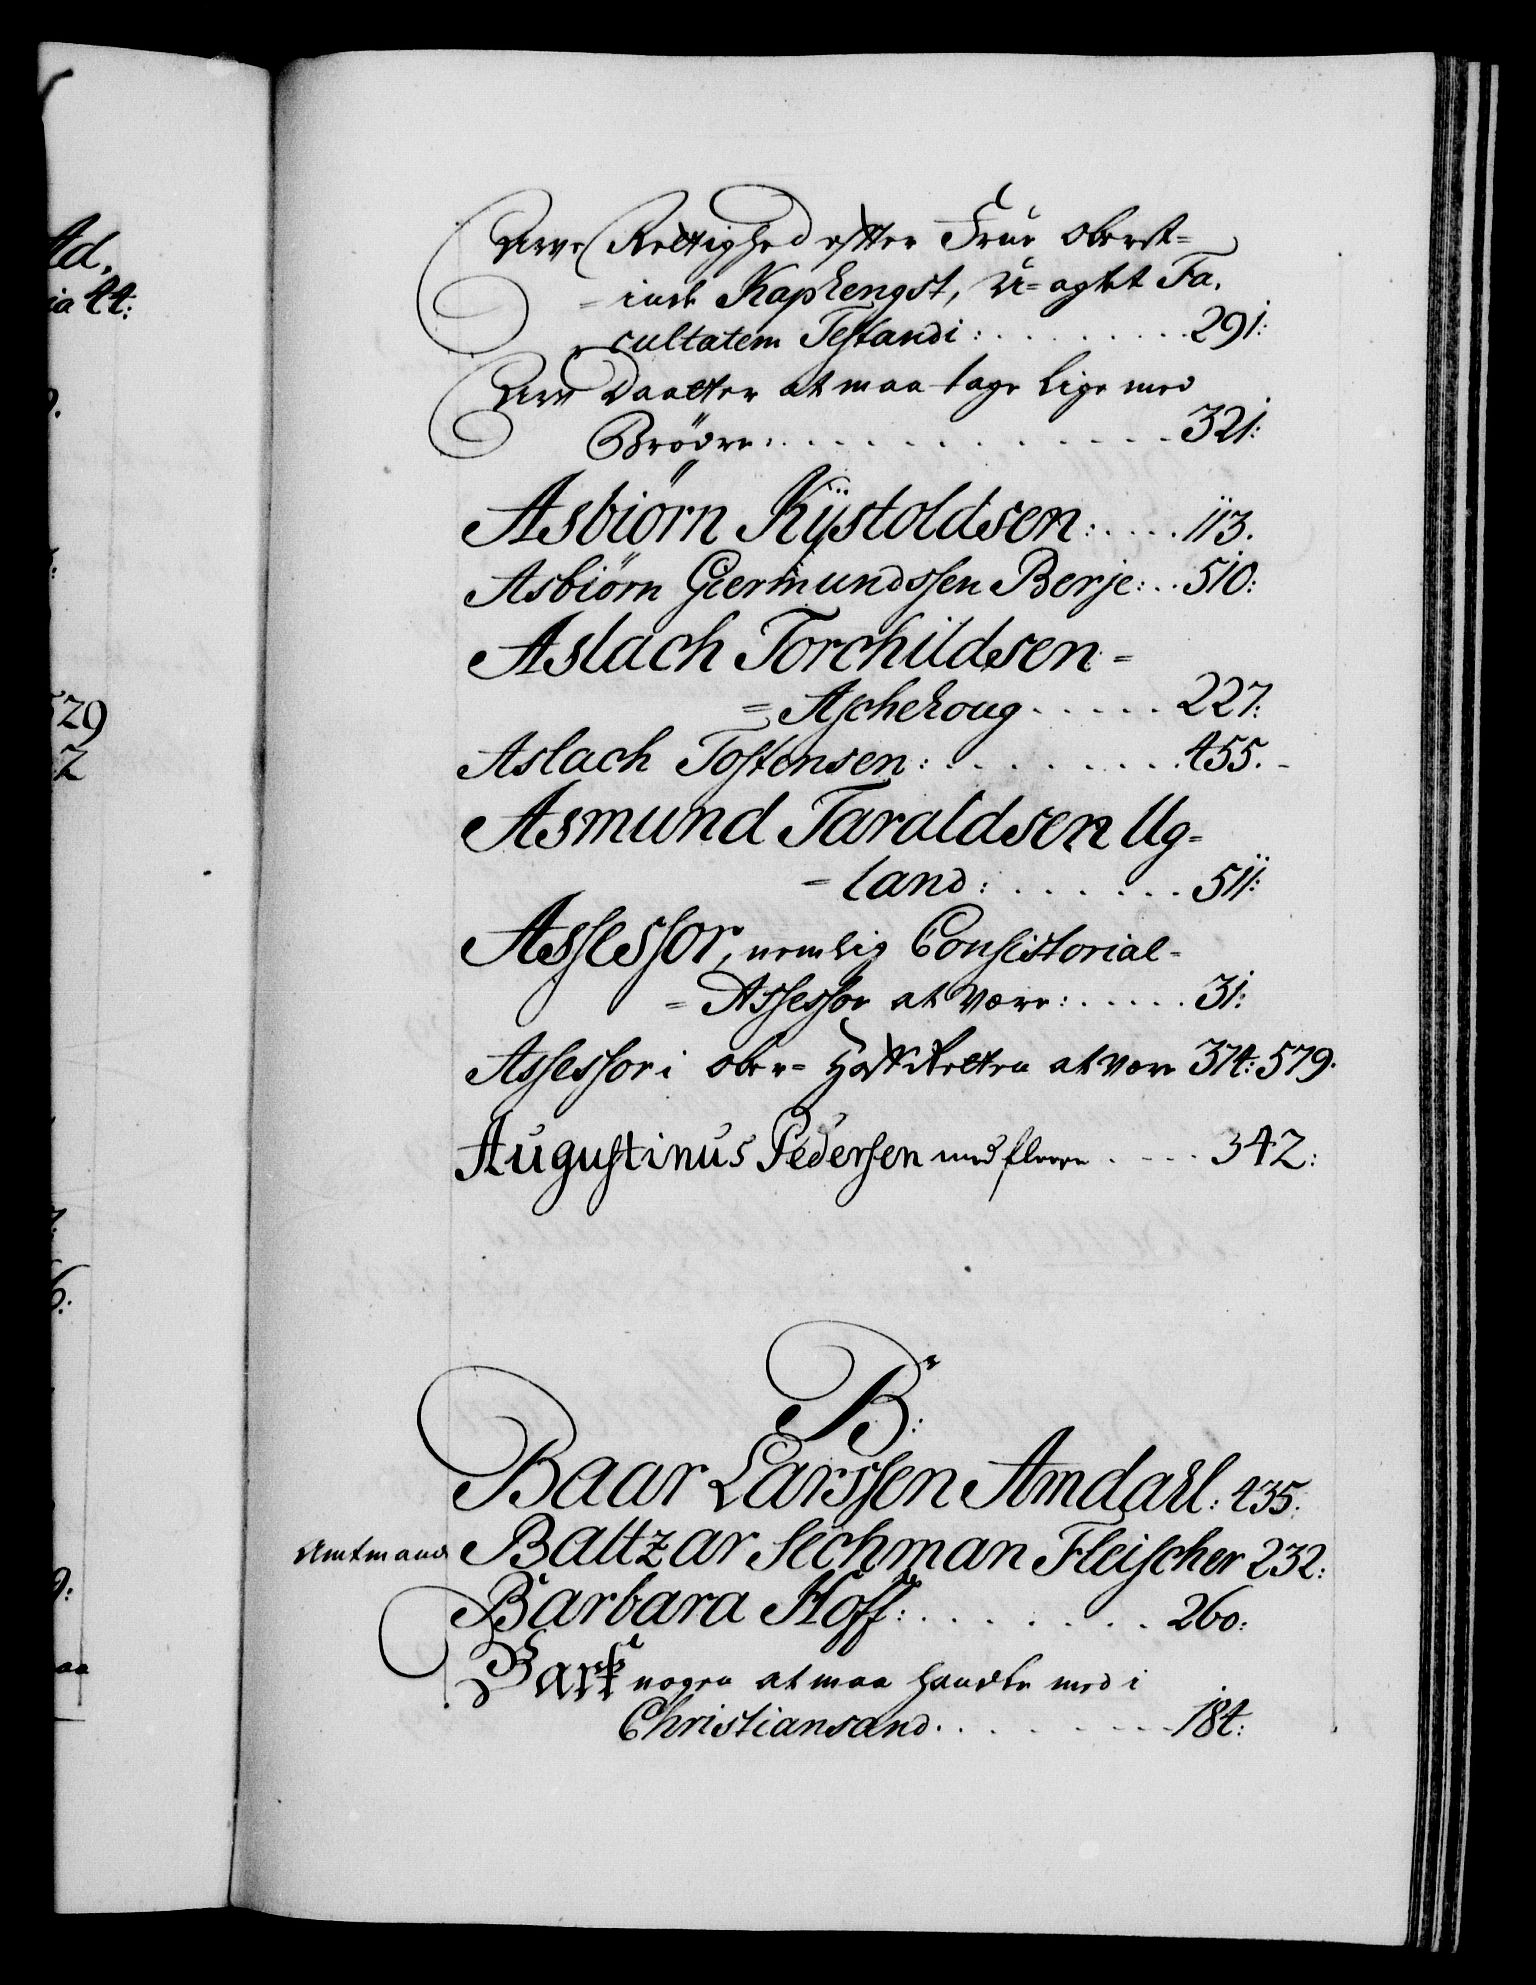 Arve Rettighed efter Frue Oberst=
= inde Kaphengst, U=agtet Fa,
cultatem Testandi: . . . . . . . . . 291:
Arve Daatter at maa tage lige med
Brödre: . . . . . . . . . . . . . 321:
Asbiörn Kÿstoldsen: . . . . 113.
Asbiörn Giermundssen Berje: . . 510:
Aslach Torchildsen =
= Aschehoug . . . . . 227:
Aslach Tostensen: . . . . . . . . . 455.
Asmund Taraldsen Ug=
= land: . . . . . . . 511:
Assessor, nemlig Consistorial =
= Assessor at være: . . . . . 31:
Assessor i Ober= HofRetten at være 374: 579.
Augustinus Pedersen med fleere . . . . 342:
B:
Baar Larssen Amdahl: 435:
Amtmand Baltzar Sechman Fleischer 232:
Barbara Hoff: . . . . . . . . 260:
Bark nogen at maa handle med i
Christiansand. . . . . . . . . 184:
Ad,
ia 44:
529
2
6:
9:
aa